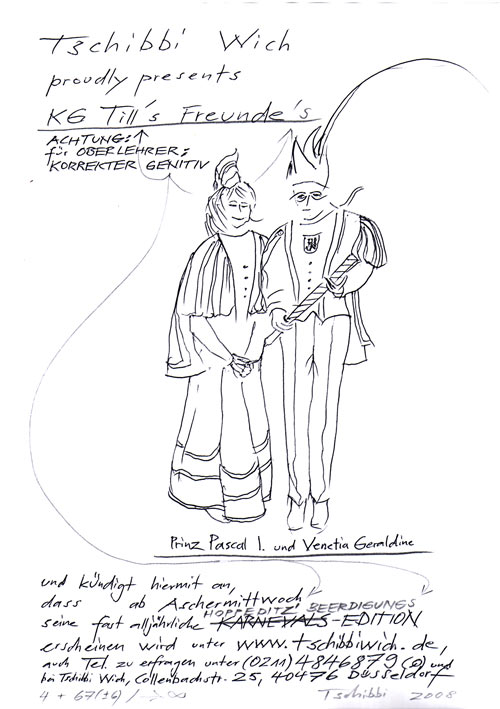 Tschibbi Wich
proudly presents
KG Till's Freunde's
ACHTUNG:
für OBERLEHRER:
KORREKTER GENITIV
Prinz Pascal I. und Venetia Geraldine
und kündigt hiermit an,
dass ab Aschermittwoch
HOPPEDITZ' BEERDIGUNGS
seine fast alljährliche KARNEVALS-EDITION
erscheinen wird unter www.tschibbiwich.de,
auch Tel. zu erfragen unter (0211) 4846879 und
bei Tschibbi Wich, Collenbachstr. 25, 40476 Düsseldorf
4 + 67(±6) / → ∞ Tschibbi 2008